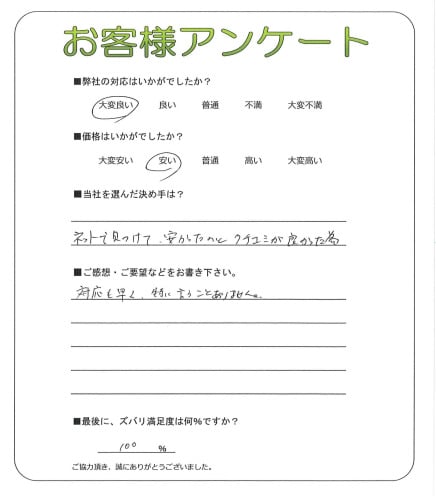 お客様アンケート
■弊社の対応はいかがでしたか？
大変良い 良い 普通 不満 大変不満
■価格はいかがでしたか？
大変安い 安い 普通 高い 大変高い
■当社を選んだ決め手は？
ネットで見つけて、安かったのと クチコミが良かった為
■ご感想・ご要望などをお書き下さい。
対応も早く、特に言うことありません。
■最後に、ズバリ満足度は何%ですか？
100 %
ご協力頂き、誠にありがとうございました。